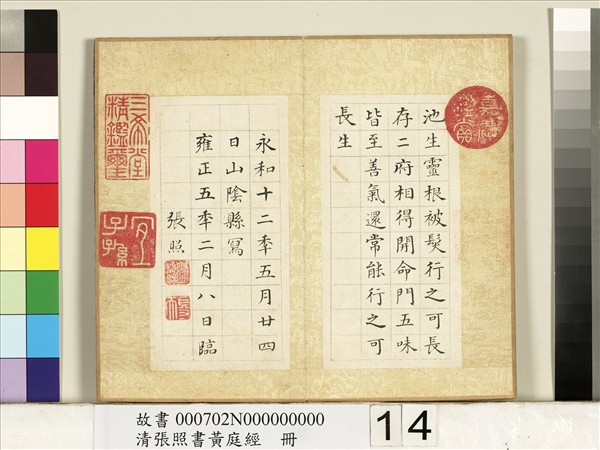 嘉慶鑑賞
池生靈根被髮行之可長
存二府相得開命門五味
皆至善氣還常能行之可
長生
永和十二秊五月廿四
日山陰縣寫
雍正五秊二月八日臨
張照
三希堂精鑑璽
宜子孫
故書 000702N000000000
清張照書黃庭經 冊
14